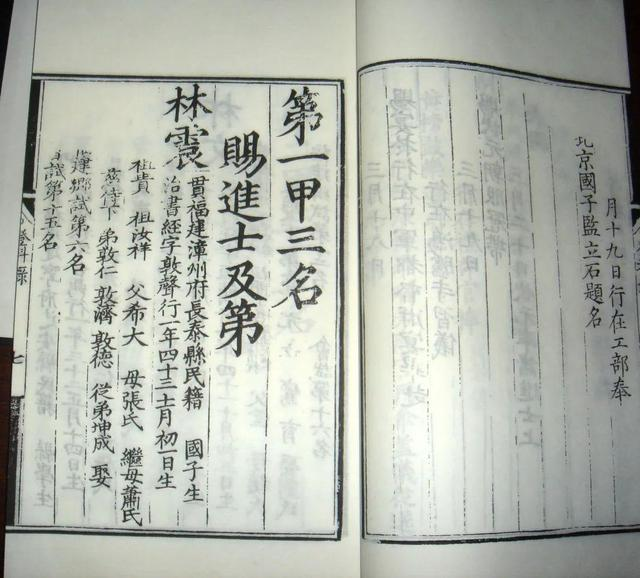 月十九日行在工部奉
北京國子監立石題名
第一甲三名
賜進士及第
林震
貫福建漳州府長泰縣民籍 國子生
治書經字敦聲行一年四十三七月初一日生
祖貴 祖汝祥 父希大 母張氏 繼母蕭氏
慈侍下 弟敦仁 敦濟 敦德 從弟坤成 娶
福建鄉試第六名
會試第十五名
登科錄
七